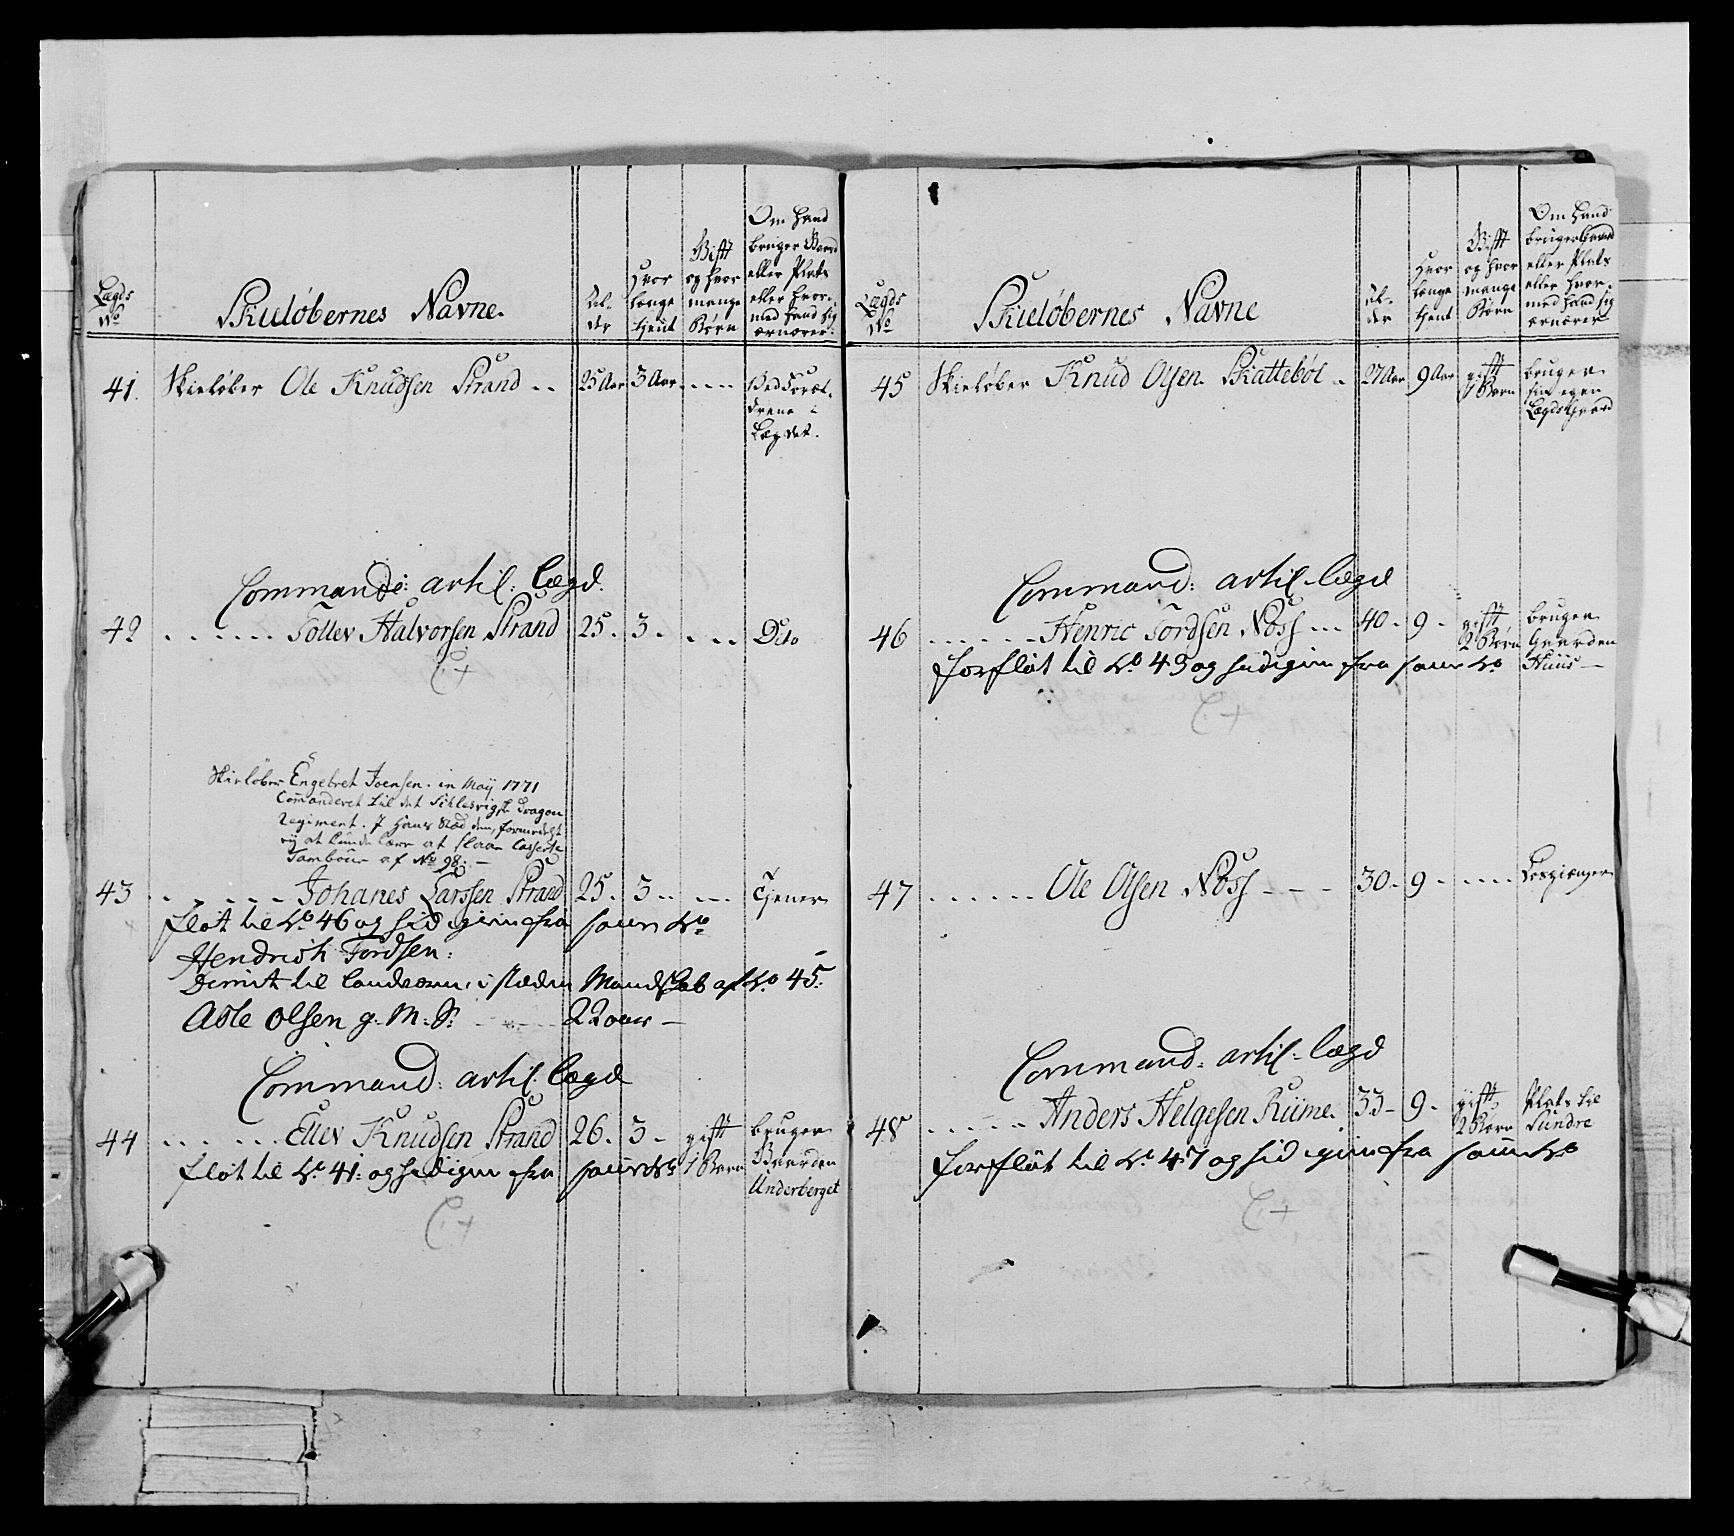 Lægds
No
Skieløbernes Navne.
Al-
der
Hvor
længe
tient
Gift
og hvor
mange
Børn
Om hand
bruger Gaard
eller Plads
eller hvor-
med hand sig
ernærer.
41. Skieløber Ole Knudsen Strand .. 25 Aar 3 Aar ....
Ved Foræl-
drene i
Lægdet.
Commande: artil: Lægd.
42 ...... Tollev Halvorsen Strand 25. 3. ... Dito
C +
Skieløber Engebret Joensen. in Maÿ 1771
Comanderet til det Schlesvigsk Dragon
Regiment. I hans Stæd den, formedelst
eÿ at kunde lære at slaae Casserte
Tambour af No 98. —
43 ...... Johanes Larssen Strand 25. 3.. ... Tjener
fløt til No 46 og hid igien fra samme No
Hendrich Tordsen:
Dimit til landværn: i stæden Mandskab af No 45:
Asle Olsen g. M. S: ...... 22 aar —
Command: artil: Lægd
44 ...... Ellev Knudsen Strand 26. 3. gift
1 Barn
bruger
Gaarden
Underberget
fløt til No 41: og hid igien fra samme No
C +
Lægds
No
Skieløbernes Navne
Al-
der
Hvor
længe
tient
Gift
og hvor
mange
Børn
Om hand
bruger Gaard
eller Plads
eller hvor-
med hand sig
ernærer
45 Skieløber Knud Olsen Skattebøl .. 27 Aar 9 Aar gift
1 Barn
bruger
sin egen
Lægds Gaard
Command: artil: lægd
46 ...... Henric Tordsen Nøss ... 40. 9. gift
2 Børn
bruger
Gaarden
Huus —
forfløt til No 43 og hid igien fra samme No
C +
47 ...... Ole Olsen Nøss - - - 30. 9. .... Losgiænger
Command: artil: lægd
48 ..... Anders Helgesen Rume. 33. 9. gift
2 Børn
Plads til
Sundre
forfløt til No 47 og hid igien fra samme No
C +